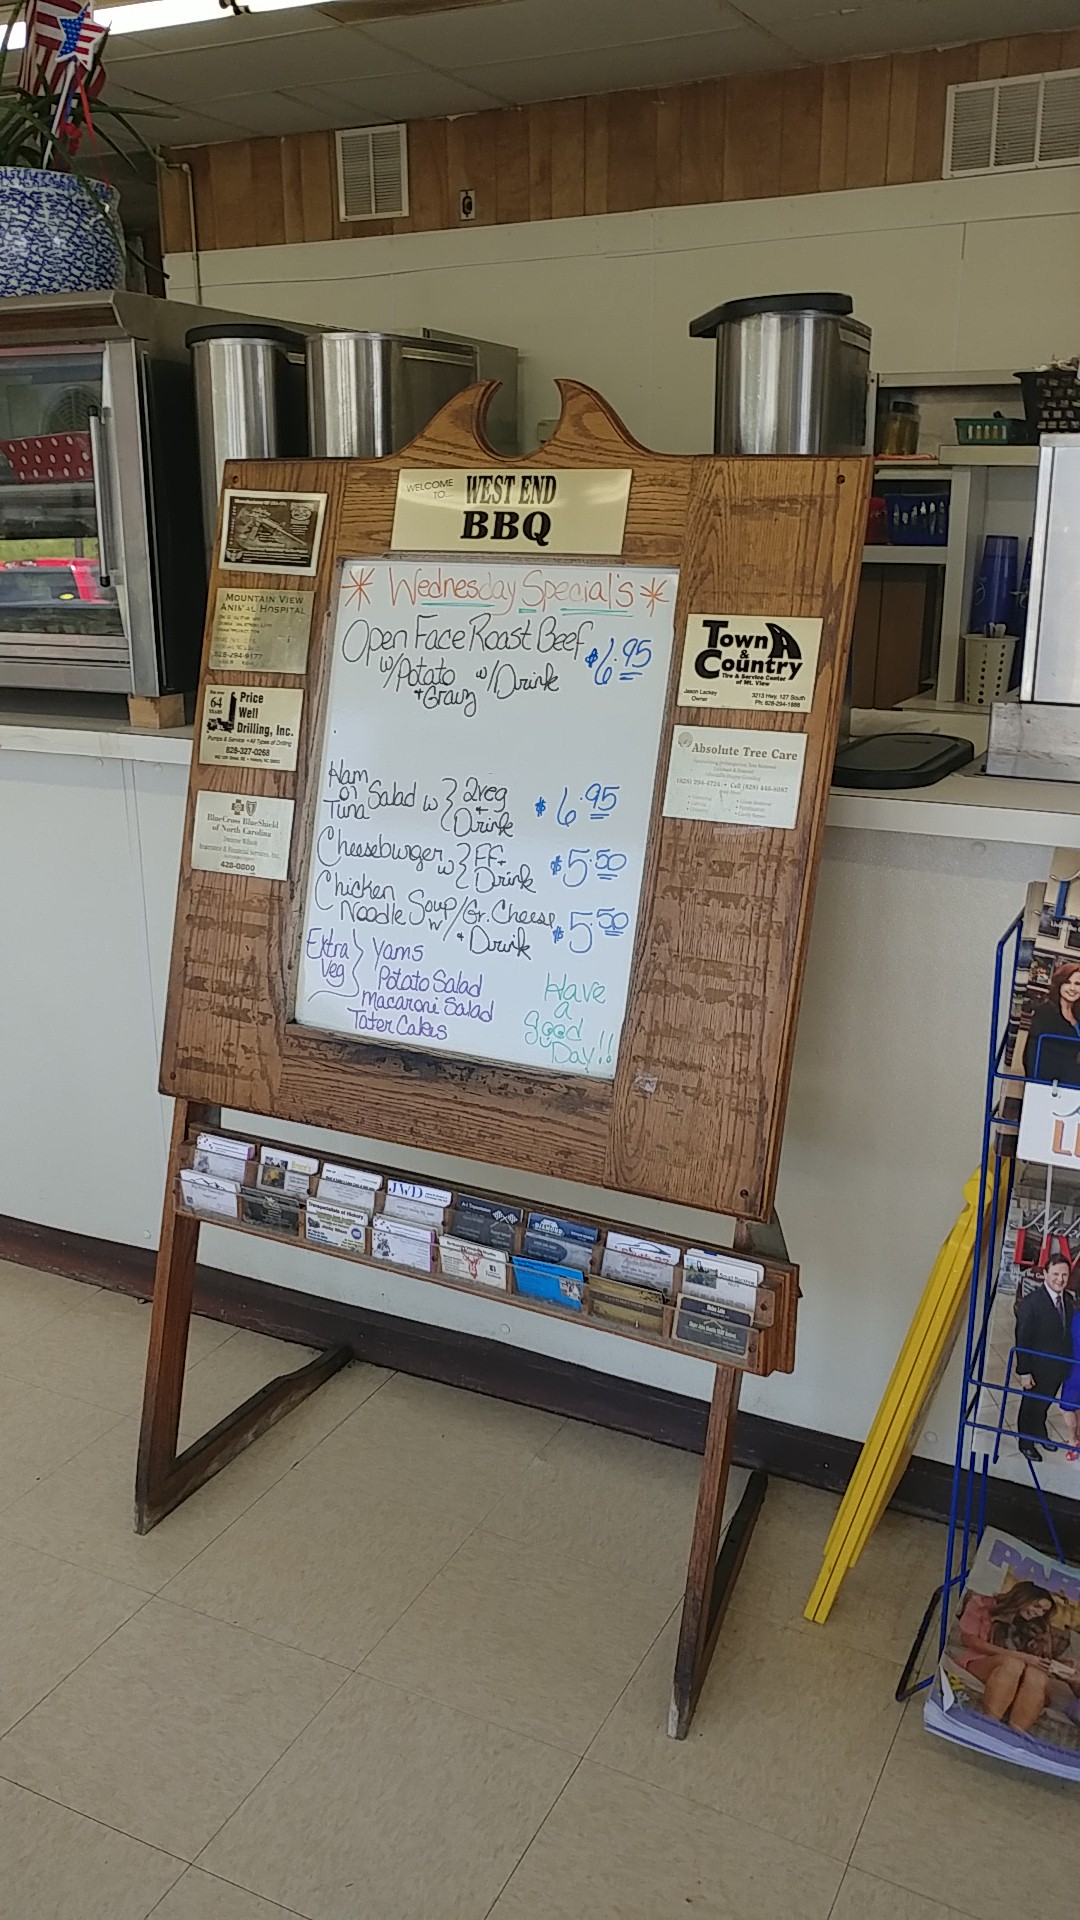 WELCOME
TO...
WEST END
BBQ
Wednesday Special's
Open Face Roast Beef $6.95
w/Potato w/Drink
+Gravy
Ham
or
Tuna Salad w 2veg + Drink $6.95
Cheeseburger w FF + Drink $5.50
Chicken
Noodle Soup w/Gr. Cheese + Drink $5.50
Extra
Veg
Yams
Potato Salad
Macaroni Salad
Tater Cakes
Have
a
good
Day!!
MOUNTAIN VIEW
ANIMAL HOSPITAL
828-294-9177
64
YEARS
Price
Well
Drilling, Inc.
Pumps & Service • All Types of Drilling
828-327-0268
BlueCross BlueShield
of North Carolina
428-0800
Town
&
Country
Tire & Service Center
of Mt. View
Jason Lackey
Owner
3213 Hwy. 127 South
Ph. 828-294-1888
Absolute Tree Care
(828) 294-4724 • Cell (828) 446-8087
JWD
DIAMOND